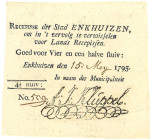 RECEPISSE der Stad ENKHUIZEN,
om in 't vervolg te verwisselen
voor Lands Recepissen.
Goed voor Vier en een halve stuiv:
Enkhuizen den 15: May 1795.
In naam der Municipaliteit
4½ stuiv:
No.